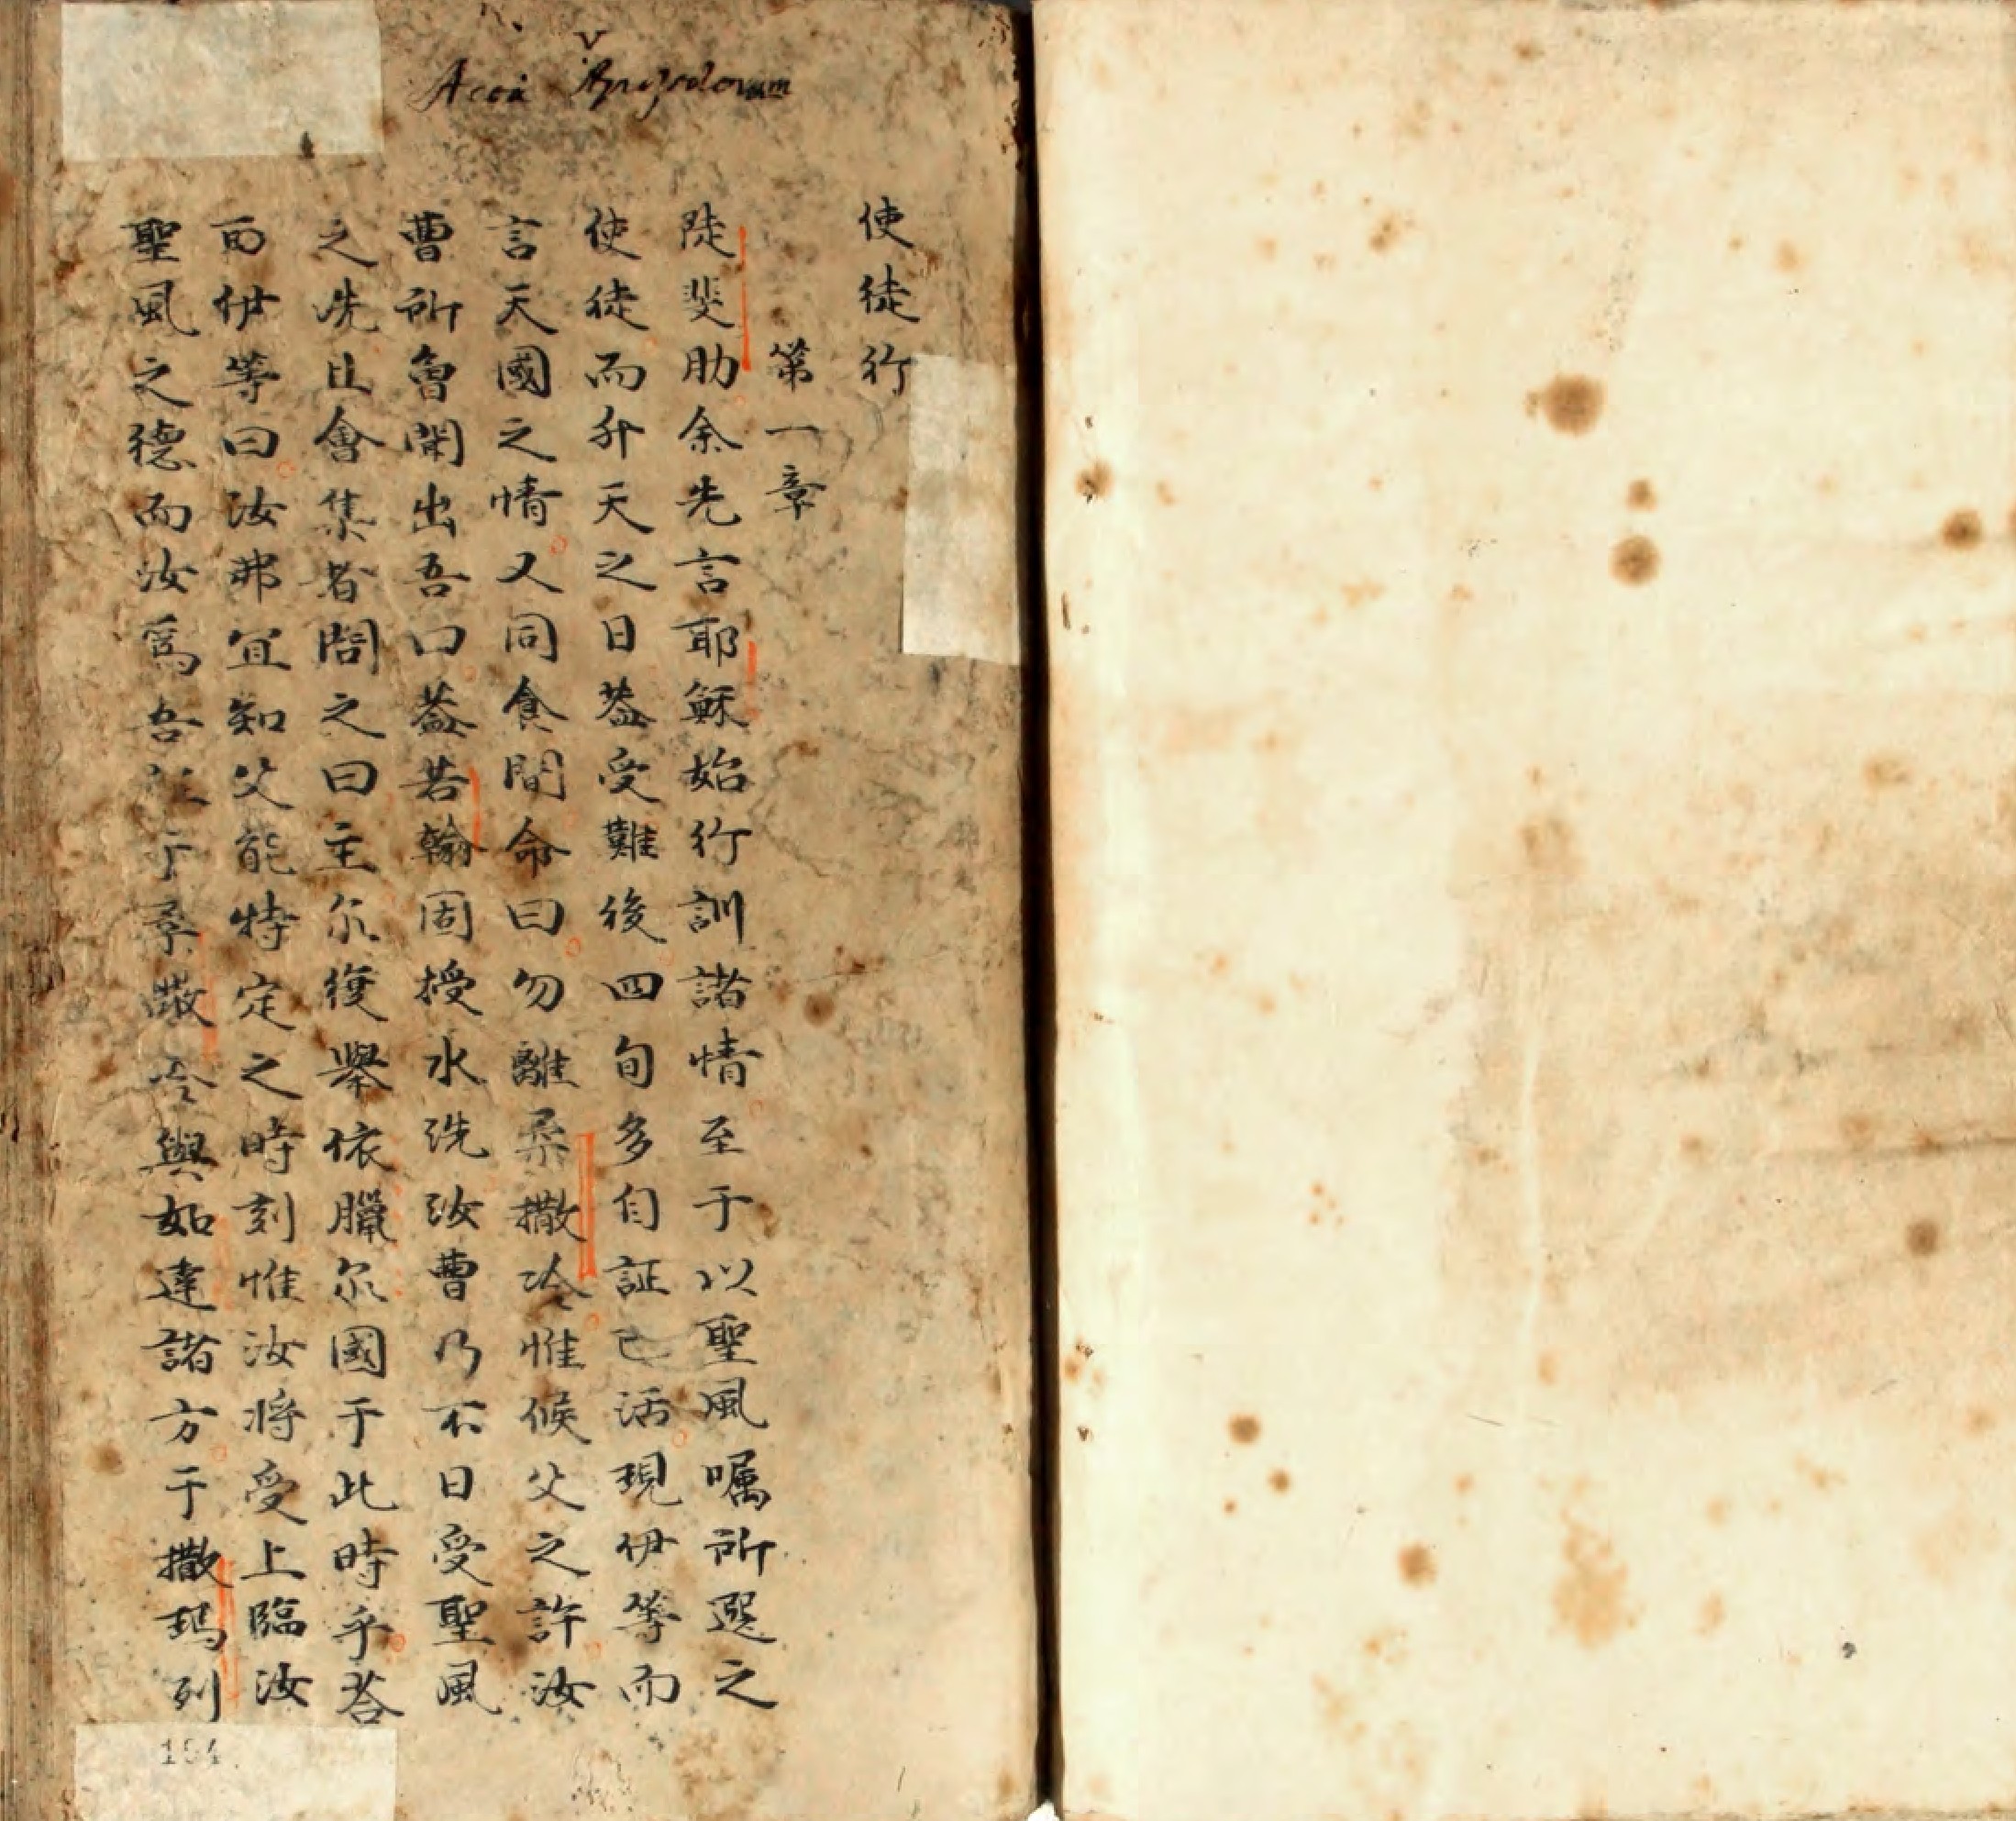 v
Acta Apostolorum
使徒行
第一章
陡斐肋余先言耶穌始行訓諸情至于以聖風囑所選之
使徒而升天之日蓋受難後四旬多自証已活現伊等而
言天國之情又同食間命曰勿離柔撒冷惟候父之許汝
曹所魯聞出吾口蓋若翰固授水洗汝曹乃不日受聖風
之洗且會集者問之曰主尔復舉依臘尔國于此時乎答
而伊等曰汝弗宜知父能特定之時刻惟汝將受上臨汝
聖風之德而汝為吾証于柔撒冷與如達諸方于撒瑪列
154.